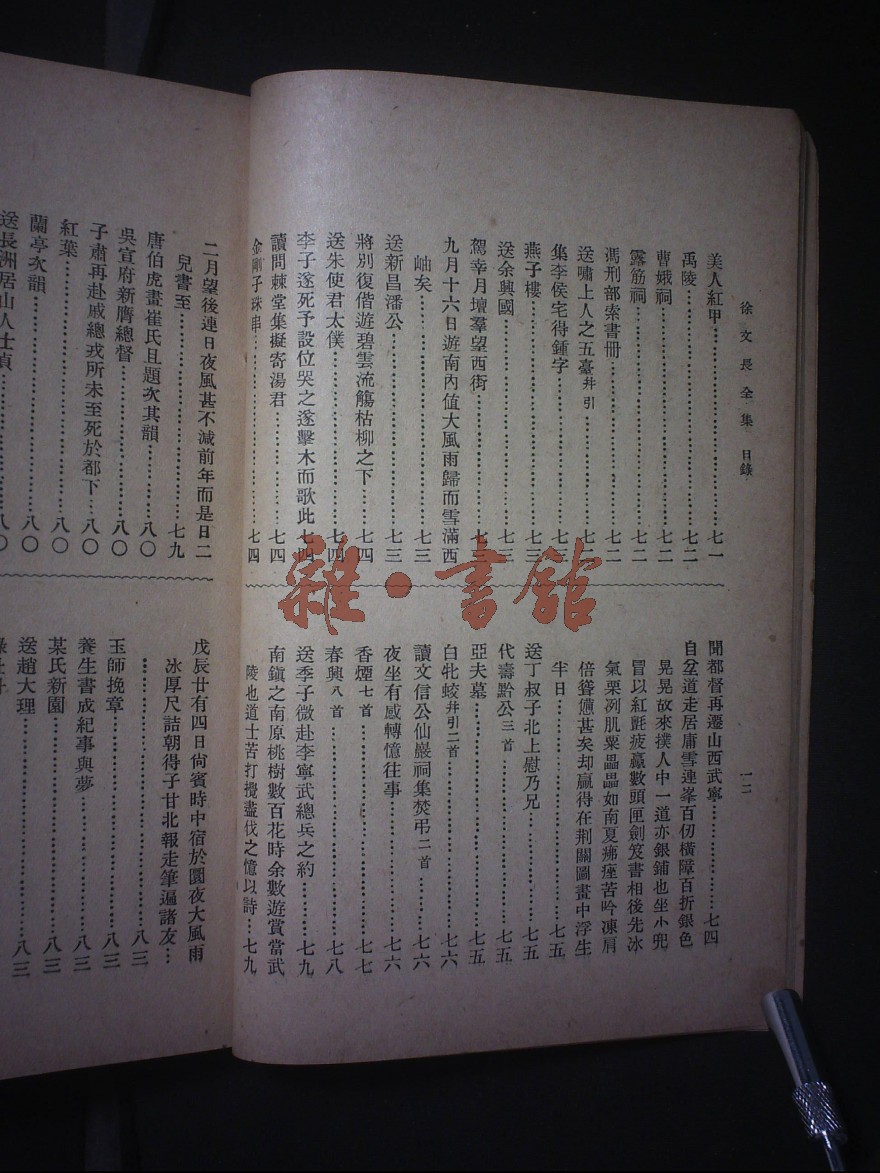 徐文長全集 目錄
一二
美人紅甲……七一
禹陵……七二
曹娥祠……七二
露筋祠……七二
馮刑部索書冊……七二
送嘯上人之五臺并引……七三
集李侯宅得鍾字……七三
燕子樓……七三
送余興國……七三
駕幸月壇羣望西街……七三
九月十六日遊南內值大風雨歸而雪滿西
岫矣……七三
送新昌潘公……七三
將別復偕遊碧雲流觴枯柳之下……七四
送朱使君太僕……七四
李子遂死予設位哭之遂擊木而歌此…七四
讀問棘堂集擬寄湯君……七四
金剛子珠串……七四
聞都督再遷山西武寧……七四
自岔道走居庸雪連峯百仞橫障百折銀色
晃晃故來撲人中一道亦銀鋪也坐小兜
冒以紅氈疲羸數頭匣劍笈書相後先冰
氣栗冽肌粟晶晶如南夏痱痤苦吟凍肩
倍聳憊甚矣却贏得在荆關圖畫中浮生
半日……七五
送丁叔子北上慰乃兄……七五
代壽黔公三首……七五
亞夫墓……七五
白牝蛟并引二首……七六
讀文信公仙巖祠集焚弔二首……七六
夜坐有感轉憶往事……七六
香煙七首……七七
春興八首……七八
送季子微赴李寧武總兵之約……七九
南鎭之南原桃樹數百花時余數遊賞當武
陵也道士苦打攪盡伐之憶以詩…七九
二月望後連日夜風甚不減前年而是日二
兒書至……七九
唐伯虎畫崔氏且題次其韻……八〇
吳宣府新膺總督……八〇
子肅再赴戚總戎所未至死於都下…八〇
紅葉……八〇
蘭亭次韻……八〇
送長洲居山人士貞……八〇
戊辰廿有四日尙賓時中宿於圜夜大風雨
冰厚尺詰朝得子廿北報走筆遍諸友…
……八三
玉師挽章……八三
養生書成紀事與夢……八三
某氏新園……八三
送趙大理……八三
雜·書館